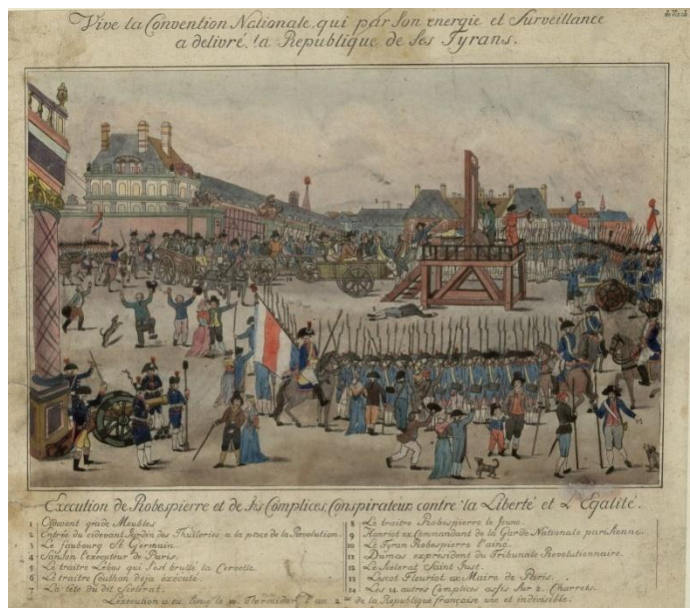 Vive la Convention Nationale, qui par son energie et Surveillance
a delivré la Republique de ses Tyrans.
Execution de Robespierre et de ses Complices, Conspirateur contre la Liberté et L'Egalité.
1 Cidevant garde Meubles
2 Entrée du cidevant Jardin des Thuileries a la place de la Revolution.
3 Le faubourg St Germain.
4 Sanson l'executeur de Paris.
5 Le traitre Lebas qui s'est brulé la Cervelle.
6 Le traitre Couthon deja éxécuté.
7 La tête du dit Scelerat.
8 Le traitre Robespierre le jeune.
9 Hanriot ex Commandant de la Garde Nationale parisienne.
10 Le Tyran Robespierre l'ainé.
11 Dumas ex président du Tribunale Revolutionnaire.
12 Le Scelerat Saint Just.
13 Lescot Fleuriot ex Maire de Paris.
14 Les 14 autres Complices assis sur 2. Charrets.
L'execution a eu lieu le 10. Thermidor l'an 2 de la Republique françoise une et indivisible.